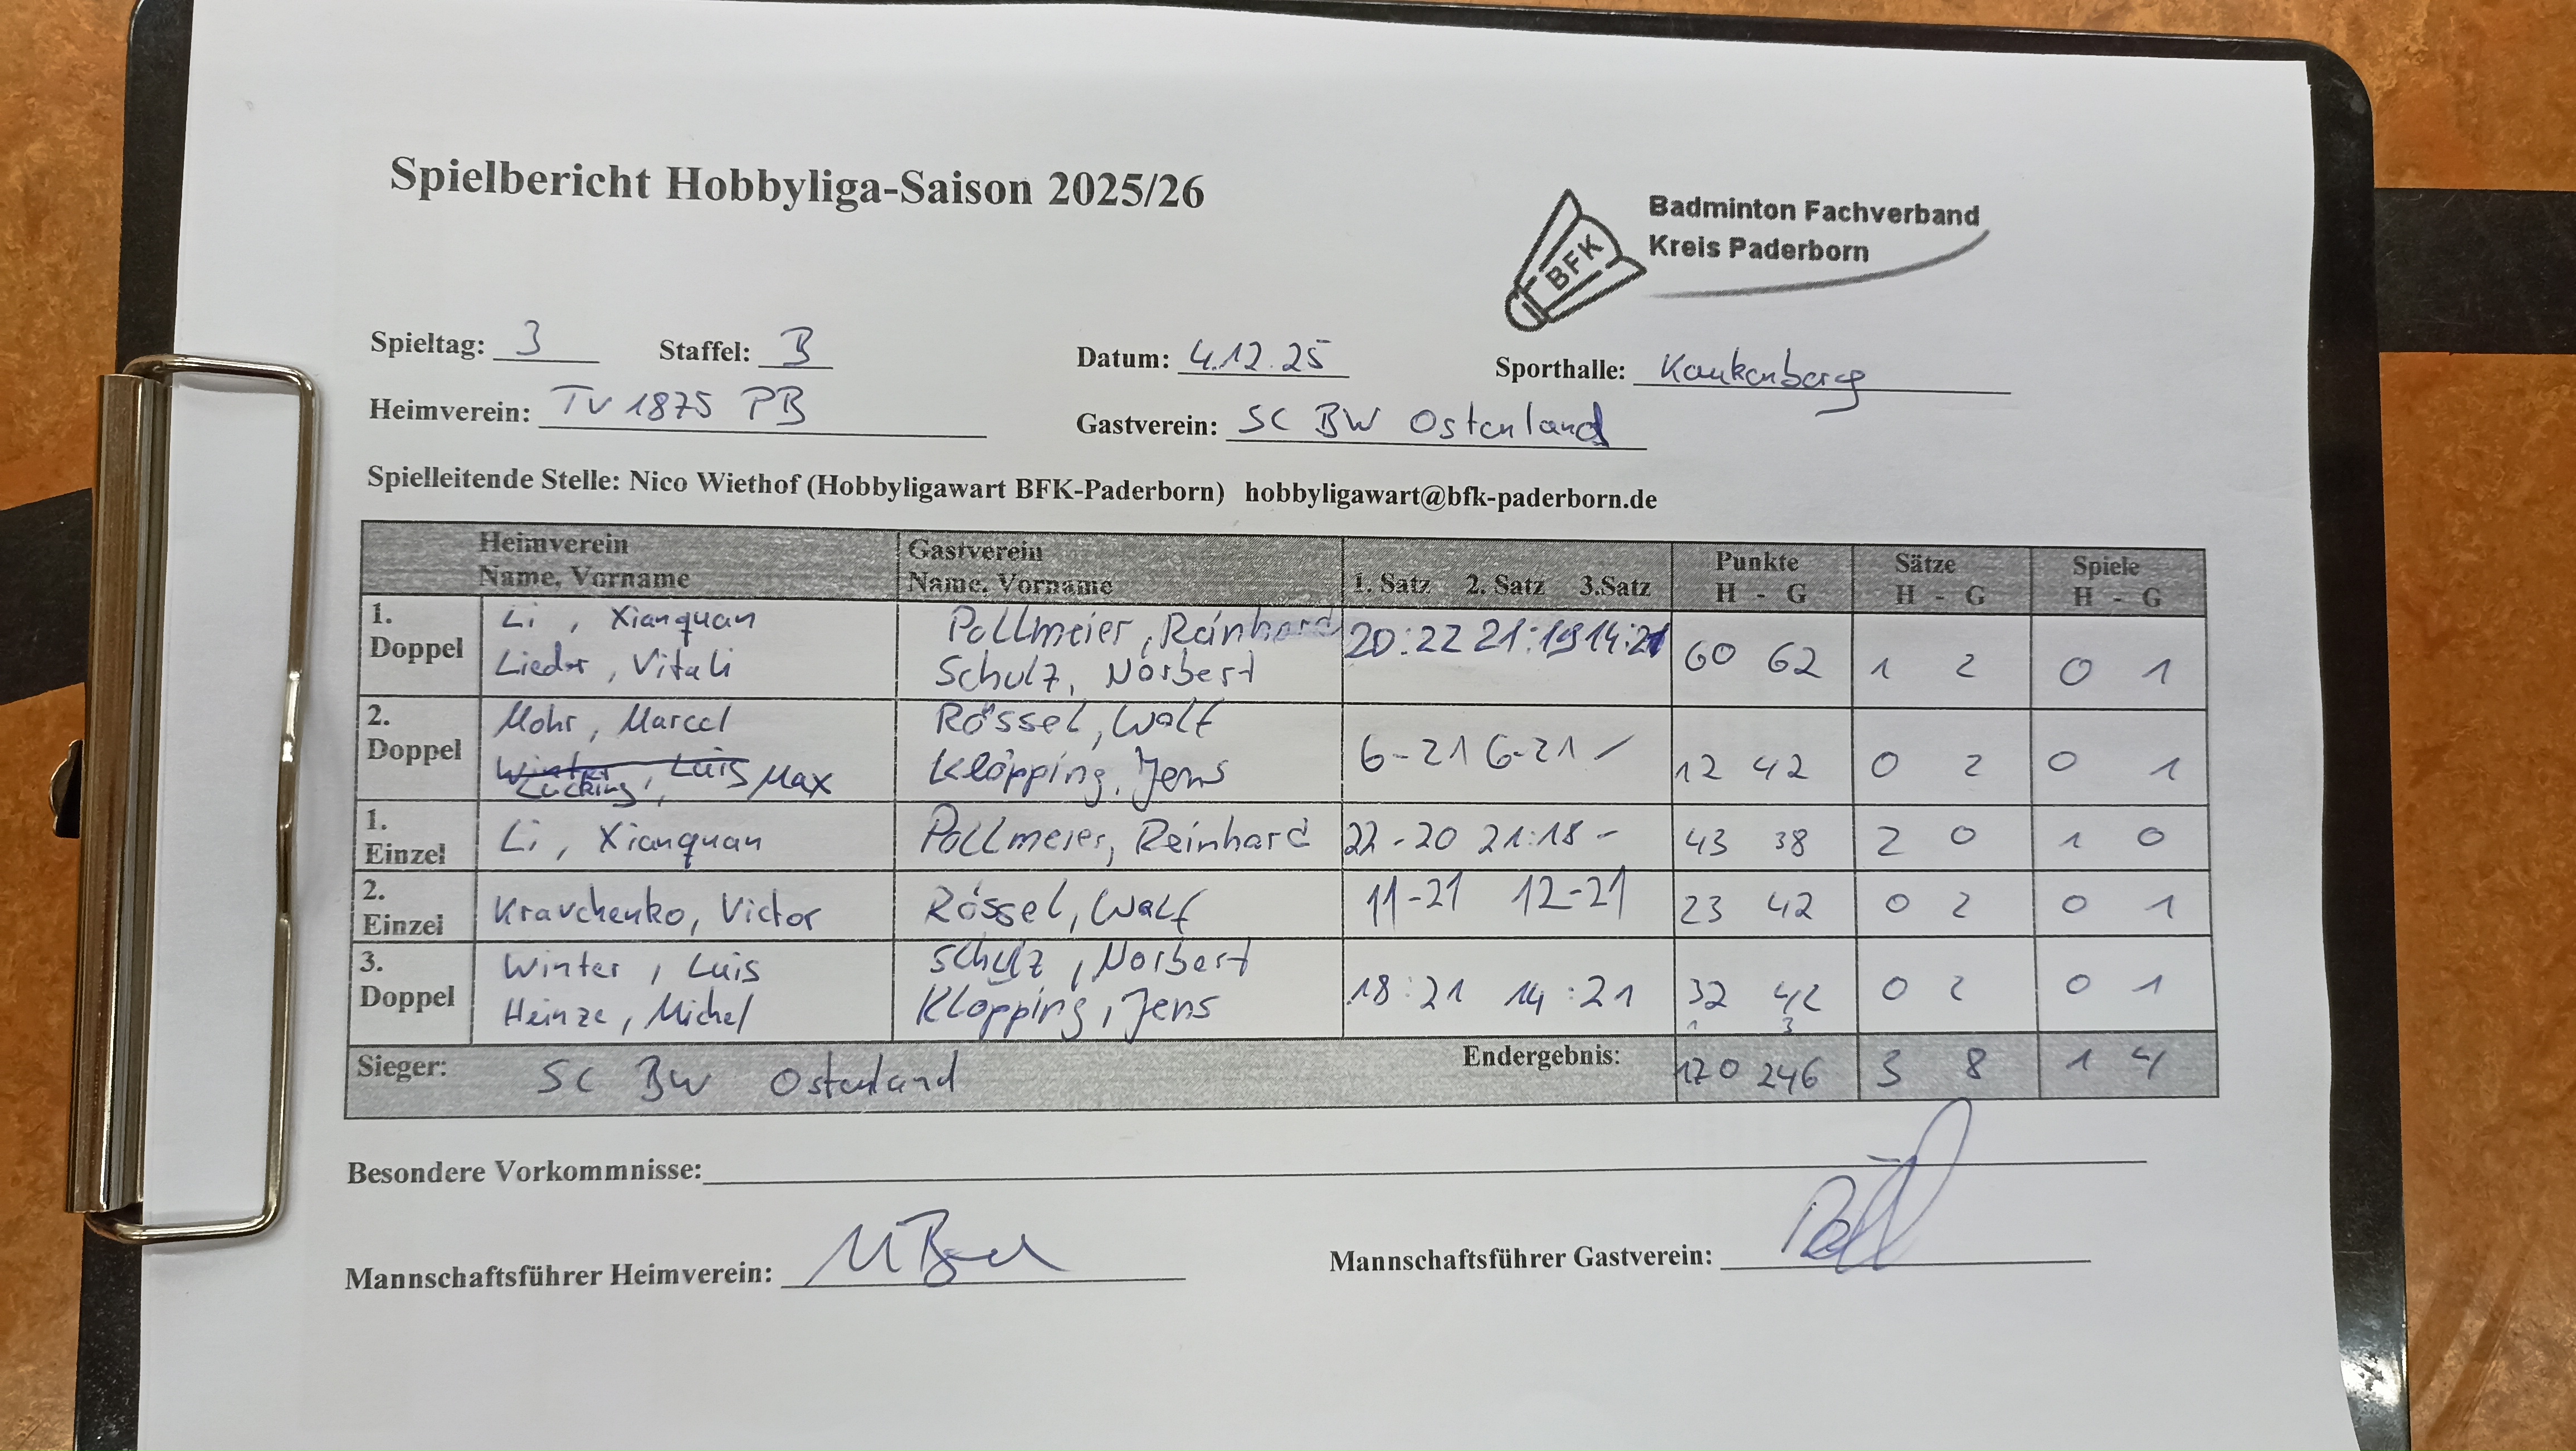 Spielbericht Hobbyliga-Saison 2025/26
Badminton Fachverband
Kreis Paderborn
BFK
Spieltag: 3 Staffel: B Datum: 4.12.25 Sporthalle: Kaukenberg
Heimverein: TV 1875 PB Gastverein: SC BW Ostenland
Spielleitende Stelle: Nico Wiethof (Hobbyligawart BFK-Paderborn) hobbyligawart@bfk-paderborn.de
Heimverein Gastverein Punkte Sätze Spiele
Name, Vorname Name, Vorname 1. Satz 2. Satz 3.Satz H - G H - G H - G
1. Li , Xianquan Pollmeier, Reinhard 20:22 21:19 14:21 60 62 1 2 0 1
Doppel Lieder, Vitali Schulz, Norbert
2. Mohr, Marcel Rössel, Wolf 6-21 6-21 / 12 42 0 2 0 1
Doppel Winter, Luis Max Klöpping, Jens
Lücking,
1. Li , Xianquan Pollmeier, Reinhard 22-20 21:18 - 43 38 2 0 1 0
Einzel
2. Kravchenko, Victor Rössel, Wolf 11-21 12-21 23 42 0 2 0 1
Einzel
3. Winter, Luis Schulz, Norbert 18:21 14:21 32 42 0 2 0 1
Doppel Heinze, Michel Klöpping, Jens
1 3
Sieger: SC BW Ostenland Endergebnis: 170 246 3 8 1 4
Besondere Vorkommnisse:
Mannschaftsführer Heimverein: Mannschaftsführer Gastverein: